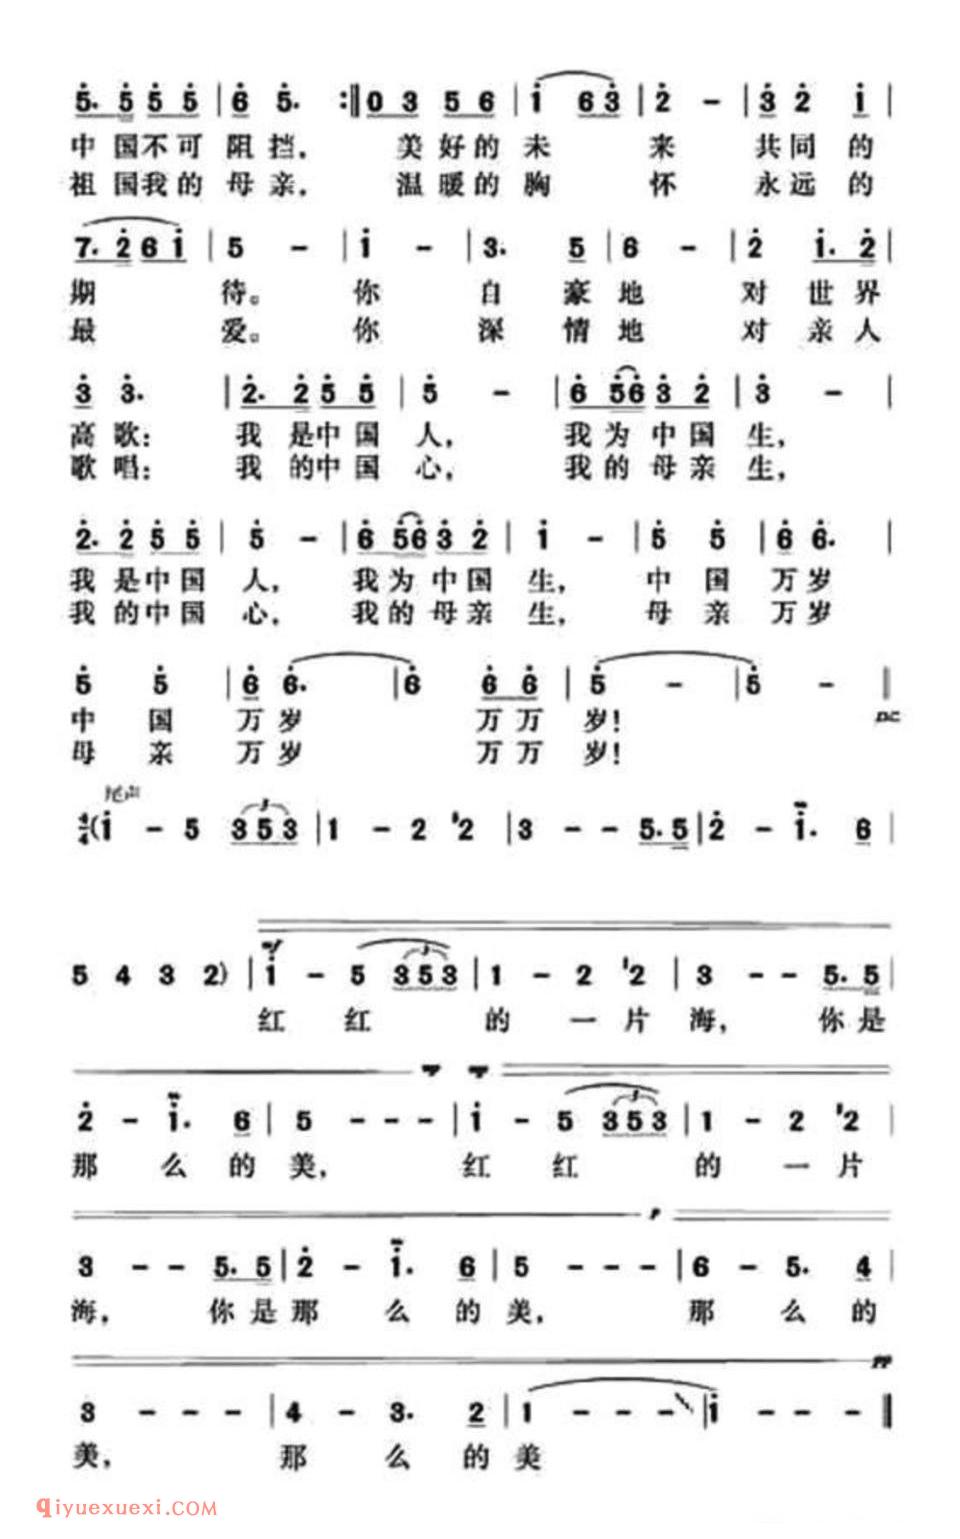 5. 5 5 5 | 6 5. :‖ 0 3 5 6 | 1 6 3 | 2 - | 3 2 1 |
中国不可阻挡, 美好的未 来 共同的
祖国我的母亲, 温暖的胸 怀 永远的
7. 2 6 1 | 5 - | 1 - | 3. 5 | 6 - | 2 1. 2 |
期 待。 你 自 豪地 对世界
最 爱。 你 深 情地 对亲人
3 3. | 2. 2 5 5 | 5 - | 6 5 6 3 2 | 3 - |
高歌: 我是中国人, 我为中国生,
歌唱: 我的中国心, 我的母亲生,
2. 2 5 5 | 5 - | 6 5 6 3 2 | 1 - | 5 5 | 6 6. |
我是中国人, 我为中国生, 中国万岁
我的中国心, 我的母亲生, 母亲万岁
5 5 | 6 6. | 6 6 6 | 5 - | 5 - ‖
中国万岁 万万岁! D.C.
母亲万岁 万万岁!
尾声
4/4 ( 1 - 5 3 5 3 | 1 - 2 2 | 3 - - 5. 5 | 2 - 1. 6 |
5 4 3 2 ) | 1 - 5 3 5 3 | 1 - 2 2 | 3 - - 5. 5 |
mf
红红 的一片海, 你是
2 - 1. 6 | 5 - - - | 1 - 5 3 5 3 | 1 - 2 2 |
那么的美, 红红 的一片
p
3 - - 5. 5 | 2 - 1. 6 | 5 - - - | 6 - 5. 4 |
海, 你是那么的美, 那么的
pp
3 - - - | 4 - 3. 2 | 1 - - - | 1 - - - ‖
美, 那么的美
qiyuexuexi.COM